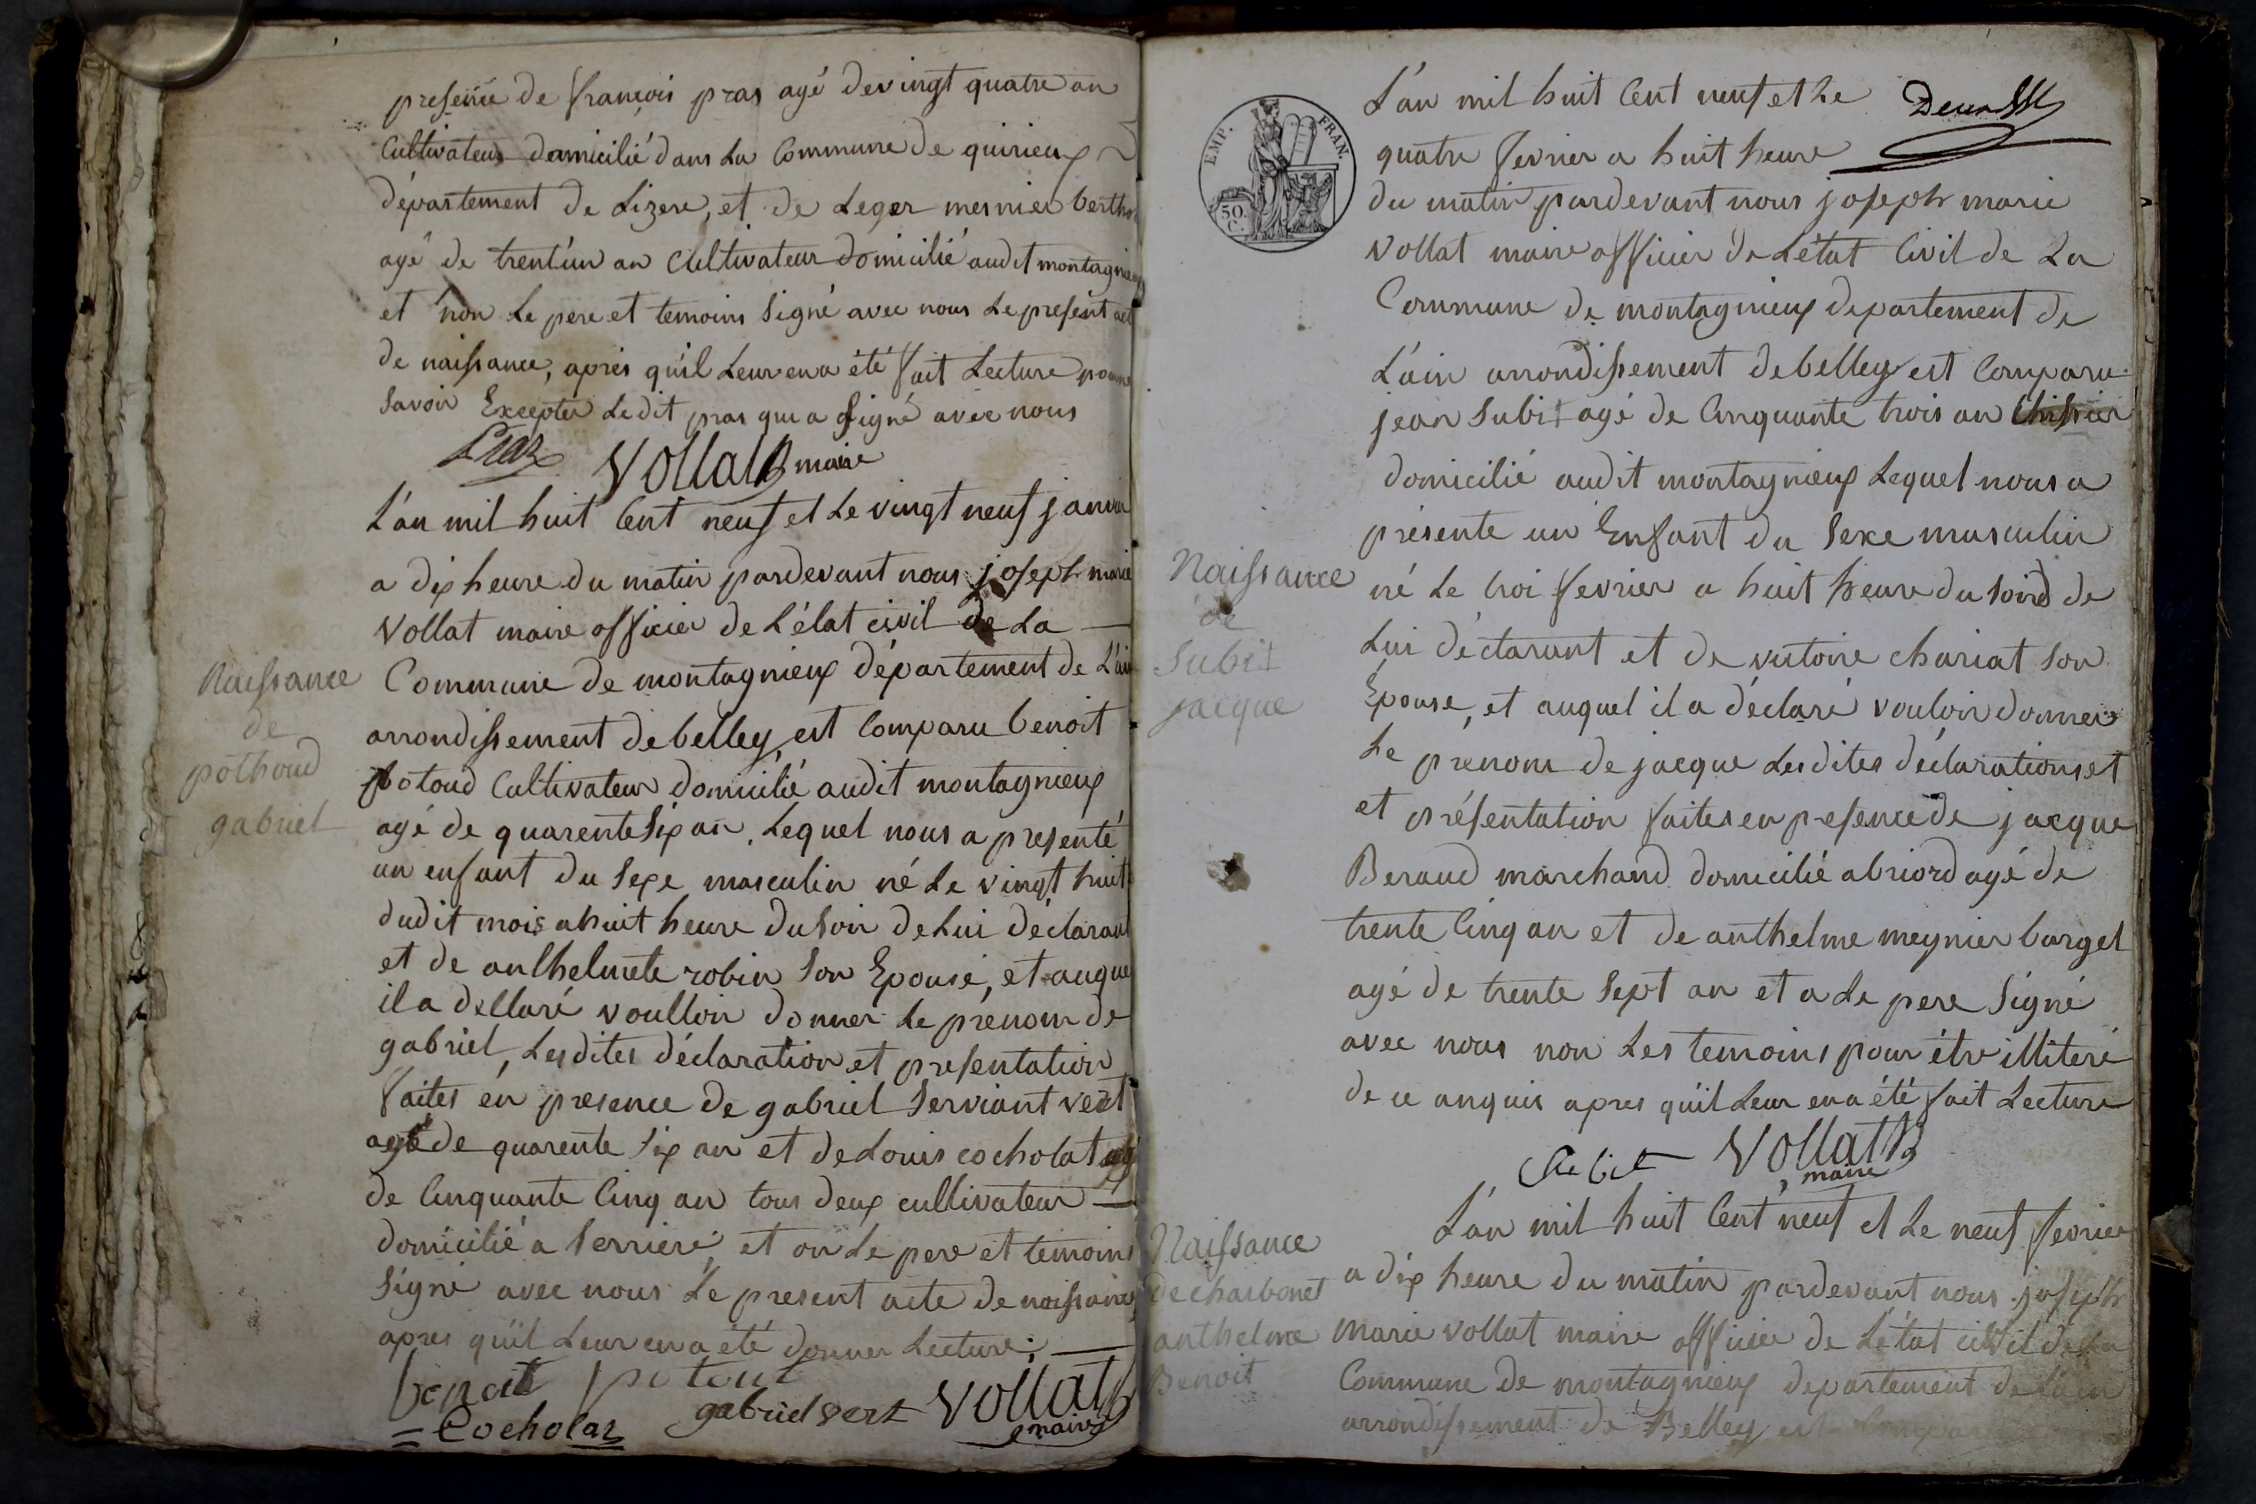 presence de françois pras agé de vingt quatre an
cultivateur domicilié dans La Commune de quirieux
département de Lizere, et de Leger mesnier berthe
agé de trent'un an Cultivateur domicilié audit montagnieux
et non Le pere et temoins Signé avec nous Le present act
de naissance, aprés qu'il Leur en a été fait Lecture pour ne
savoir Excepter Ledit pras qui a Signé avec nous
Praz Vollat maire
L'an mil huit Cent neuf et Le vingt neuf janvier
a dix heure du matin pardevant nous joseph marie
Vollat maire officier de L'état civil de La
Naissance
de
pothoud
gabriel
Commune de montagnieux département de L'ain
arrondissement de belley est Comparu benoit
potoud Cultivateur domicilié audit montagnieux
agé de quarente Six an, Lequel nous a presenté
un enfant du Sexe masculin né Le vingt huit
dudit mois a huit heure du Soir de Lui déclarant
et de anthelmete robin Son Epouse, et auquel
il a dellaré voulloir donner Le prénom de
gabriel, Lesdites déclaration et presentation
faites en presence de gabriel Serviant vert
agé de quarente Six an et de Louis cocholat agé
de Cinquante Cinq an tous deux cultivateur
domicilié a Serriere, et on Le pere et temoins
Signé avec nous Le present acte de naissance
apres qu'il Leur en a été donner Lecture.
benoit potout
gabriel vert Vollat
= Cocholaz maire
EMP. FRAN.
50.
C.
L'an mil huit Cent neuf et Le
quatre fevrier a huit heure
du matin pardevant nous joseph marie
Vollat maire officier de L'état Civil de La
Commune de montagnieux departement de
L'ain arrondissement de belley est Comparu
jean Subit agé de Cinquante trois an
domicilié audit montagnieux Lequel nous a
présente un Enfant du Sexe masculin
Naissance
de
Subit
jacque
né Le troi fevrier a huit heure du soir de
Lui déclarant et de victoire chariat Son
Epouse, et auquel il a déclaré vouloir donner
Le prénom de jacque Lesdites déclarations et
et présentation faites en presence de jacque
Beraud marchand domicilié a briord agé de
trente Cinq an et de anthelme meynier barget
agé de trente Sept an et a Le pere Signé
avec nous non Les temoins pour étre illiteré
de ce anquis apres qu'il Leur en a été fait Lecture
Subit Vollat
maire
Naissance
de charbonet
anthelme
Benoit
L'an mil huit Cent neuf et Le neuf fevrier
a dix heure du matin pardevant nous joseph
Marie vollat maire officier de L'état civil de La
Commune de montagnieux departement de L'ain
arrondissement de Belley est Comparu